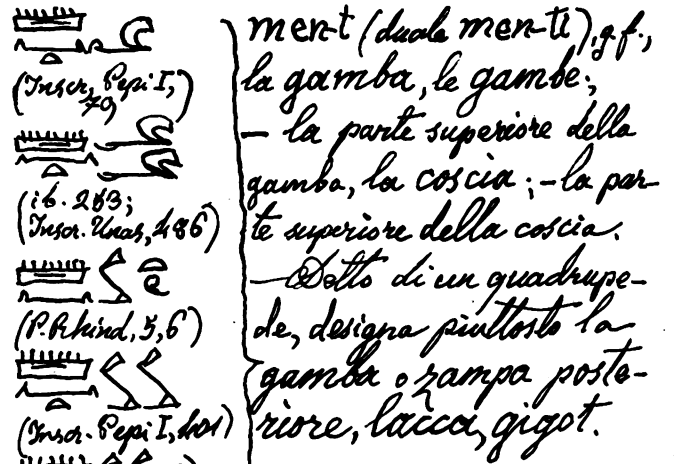 (Inscr. Pepi I,
79)
(ib. 263;
Inscr. Unas, 486)
(P. Rhind, 5, 6)
(Inscr. Pepi I, 401)
men-t (duale men-ti), g. f.,
la gamba, le gambe;
— la parte superiore della
gamba, la coscia; — la par-
te superiore della coscia.
— Detto di un quadrupe-
de, designa piuttosto la
gamba o zampa poste-
riore, lacca, gigot.